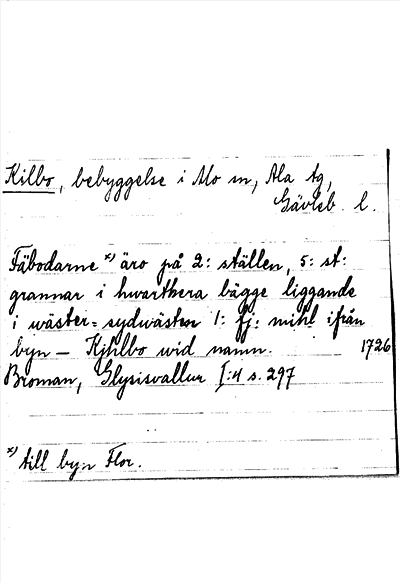 Kilbo, bebyggelse i Mo sn, Ala tg,
Gävleb. l.
Fäbodarne x) äro på 2: ställen, 5: st:
grannar i hwarthera bägge liggande
i wäster=sydwästen 1: fj: mihl ifrån
byn – Kjhlbo wid namn. 1726
Broman, Glysisvallur I:4 s. 297
x) till byn Flor.